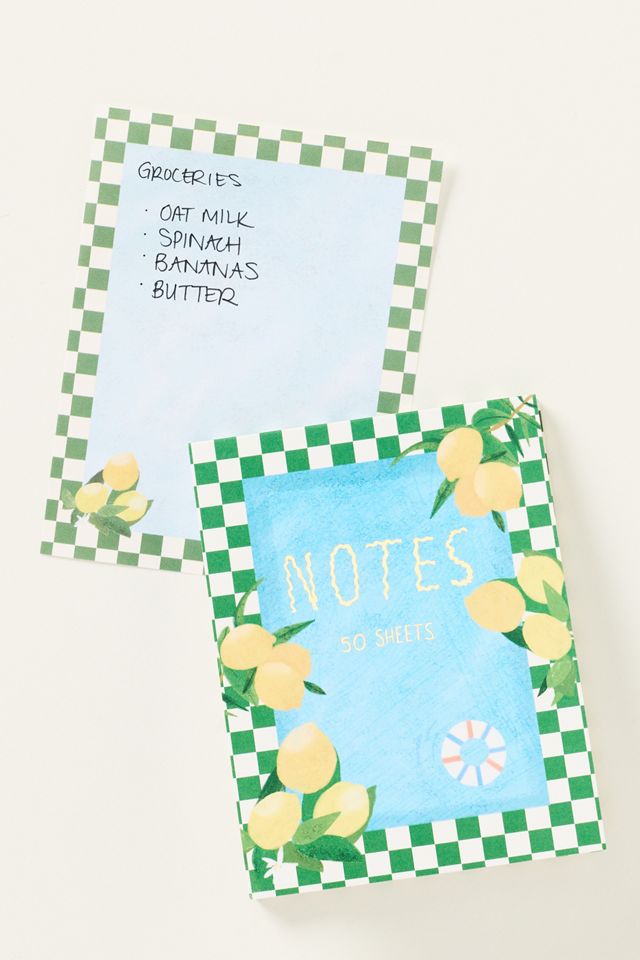 GROCERIES
· OAT MILK
· SPINACH
· BANANAS
· BUTTER
NOTES
50 SHEETS